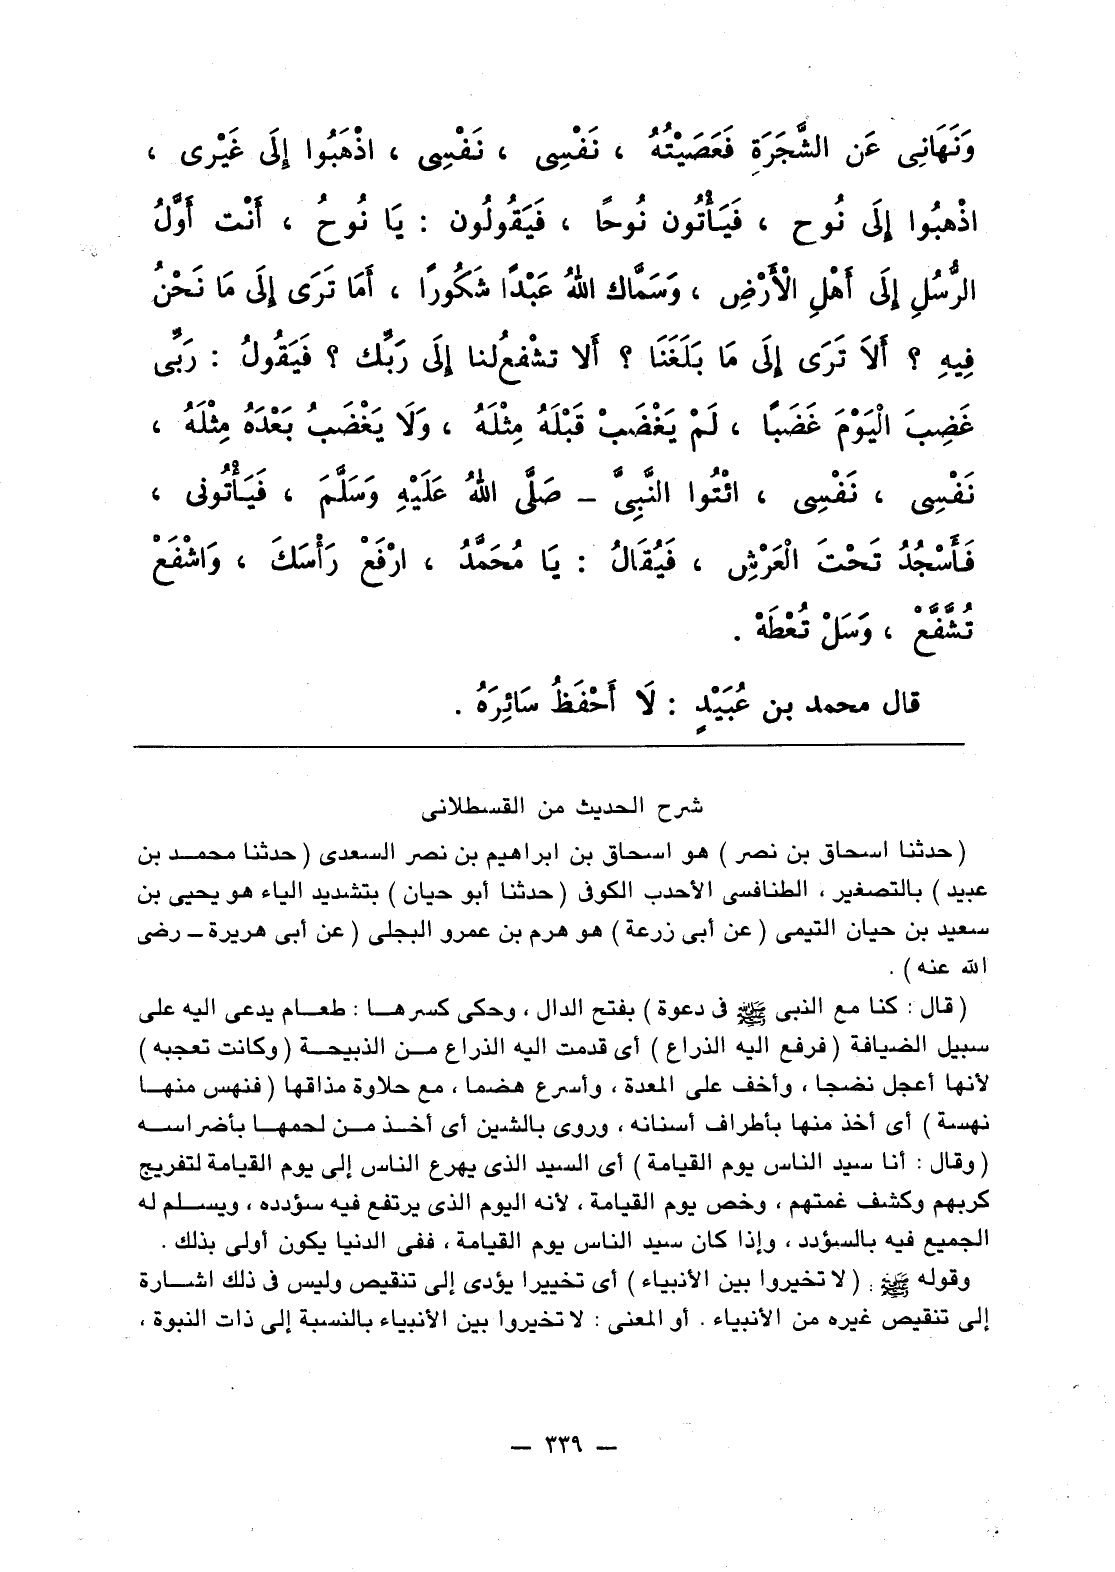 وَنَهَانِى عَنِ الشَّجَرَةِ فَعَصَيْتُهُ ، نَفْسِى ، نَفْسِى ، اذْهَبُوا إِلَى غَيْرِى ،
اذْهَبُوا إِلَى نُوحٍ ، فَيَأْتُونَ نُوحًا ، فَيَقُولُونَ : يَا نُوحُ ، أَنْتَ أَوَّلُ
الرُّسُلِ إِلَى أَهْلِ الْأَرْضِ ، وَسَمَّاكَ اللهُ عَبْدًا شَكُورًا ، أَمَا تَرَى إِلَى مَا نَحْنُ
فِيهِ ؟ أَلاَ تَرَى إِلَى مَا بَلَغَنَا ؟ أَلا تشْفعُ لنا إِلَى رَبِّكَ ؟ فَيَقُولُ : رَبِّى
غَضِبَ الْيَوْمَ غَضَبًا ، لَمْ يَغْضَبْ قَبْلَهُ مِثْلَهُ ، وَلَا يَغْضَبُ بَعْدَهُ مِثْلَهُ ،
نَفْسِى ، نَفْسِى ، ائْتُوا النَّبِىَّ – صَلَّى اللهُ عَلَيْهِ وَسَلَّمَ ، فَيَأْتُونِى ،
فَأَسْجُدُ تَحْتَ الْعَرْشِ ، فَيُقَالُ : يَا مُحَمَّدُ ، ارْفَعْ رَأْسَكَ ، وَاشْفَعْ
تُشَفَّعْ ، وَسَلْ تُعْطَهْ .
قال محمد بن عُبَيْدٍ : لَا أَحْفَظُ سَائِرَهُ .
شرح الحديث من القسطلانى
( حدثنا اسحاق بن نصر ) هو اسحاق بن ابراهيم بن نصر السعدى ( حدثنا محمد بن
عبيد ) بالتصغير ، الطنافسى الأحدب الكوفى ( حدثنا أبو حيان ) بتشديد الياء هو يحيى بن
سعيد بن حيان التيمى ( عن أبى زرعة ) هو هرم بن عمرو البجلى ( عن أبى هريرة – رضى
الله عنه ) .
( قال : كنا مع النبى ﷺ فى دعوة ) بفتح الدال ، وحكى كسرها : طعام يدعى اليه على
سبيل الضيافة ( فرفع اليه الذراع ) أى قدمت اليه الذراع من الذبيحة ( وكانت تعجبه )
لأنها أعجل نضجا ، وأخف على المعدة ، وأسرع هضما ، مع حلاوة مذاقها ( فنهس منها
نهسة ) أى أخذ منها بأطراف أسنانه ، وروى بالشين أى أخذ من لحمها بأضراسه
( وقال : أنا سيد الناس يوم القيامة ) أى السيد الذى يهرع الناس إلى يوم القيامة لتفريج
كربهم وكشف غمتهم ، وخص يوم القيامة ، لأنه اليوم الذى يرتفع فيه سؤدده ، ويسلم له
الجميع فيه بالسؤدد ، وإذا كان سيد الناس يوم القيامة ، ففى الدنيا يكون أولى بذلك .
وقوله ﷺ : ( لا تخيروا بين الأنبياء ) أى تخييرا يؤدى إلى تنقيص وليس فى ذلك اشارة
إلى تنقيص غيره من الأنبياء . أو المعنى : لا تخيروا بين الأنبياء بالنسبة إلى ذات النبوة ،
— ٣٣٩ —